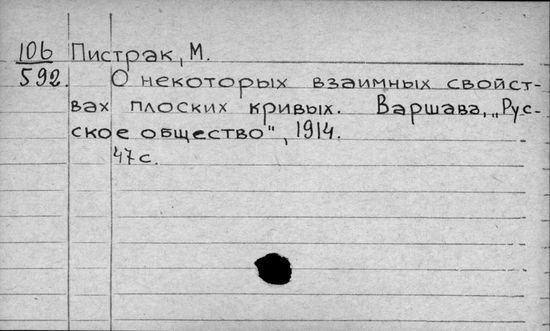 106 Пистрак, М.
592. О некоторых взаимных свойст-
вах плоских кривых. Варшава, „Рус-
ское общество", 1914.
47 с.